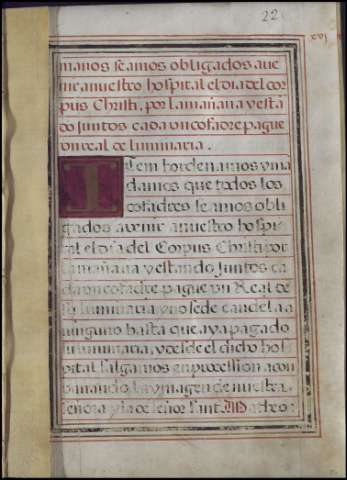 22
xvj
manos seamos obligados a ve
nir a nuestro hospital el dia del cor
pus Christi, por la mañana y esta
do juntos cada un cofadre pague
un real de luminaria.
Item hordenamos y ma
damos que todos los
cofadres seamos obli
gados a venir a nuestro hospi
tal el dia del Corpus Christi por
la mañana y estando juntos ca
da un cofadre pague un Real de
su luminaria y no se de candela a
ninguno hasta que aya pagado
su luminaria, y desde el dicho hos
pital salgamos en procession acon
panando la ymagen de nuestra
señora y la de señor sant Matheo: